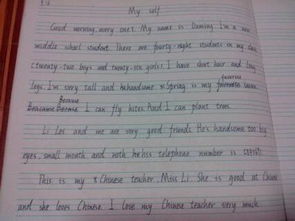 My self
Good morning, every one! My name is Daming. I'm a new
middle school student. There are fourty-eight students in my class
(twenty-two boys and twenty-six girls). I have short hair and long
legs. I'm very tall and handsome. Spring is my favourite season
Because I can fly kites. And I can plant trees.
Li Lei and me are very good friends. He's handsome too. big
eyes, small mouth and his telephone number is
This is my Chinese teacher, Miss Li. She is good at Chinese
and she loves Chinese. I love my Chinese teacher very much.